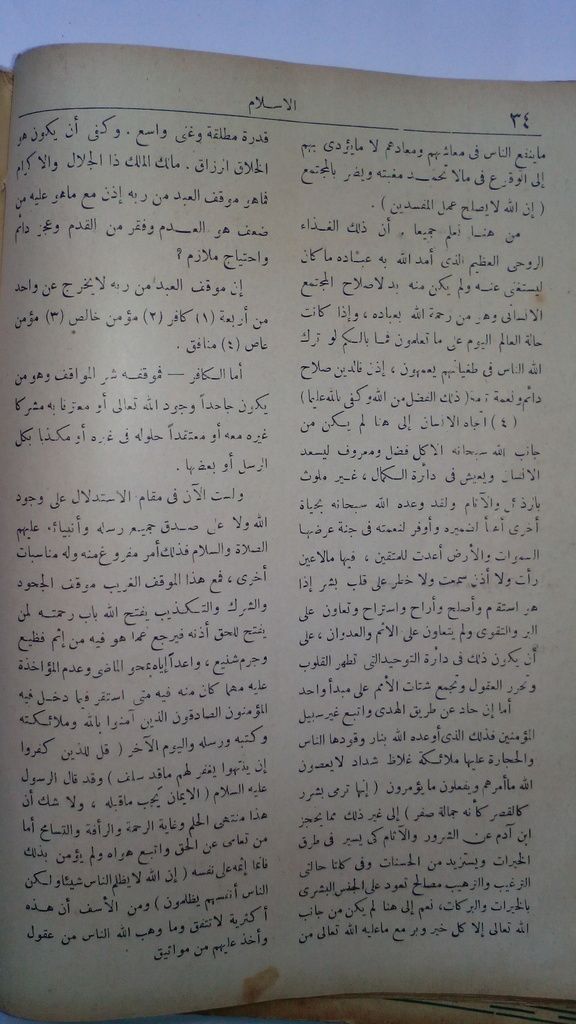 ٣٤
الاسلام
ماينفع الناس فى معاشهم ومعادهم لا مايؤدى بهم
إلى الوقوع فى مالا تحمد مغبته ويضر بالمجتمع
( إن الله لا يصلح عمل المفسدين ) .
من هنا نعلم جميعا . أن ذلك الغذاء
الروحى العظيم الذى أمد الله به عباده ما كان
ليستغنى عنه ولم يكن منه بد لاصلاح المجتمع
الانسانى وهو من رحمة الله بعباده ، وإذا كانت
حالة العالم اليوم على ما تعلمون فما بالكم لو ترك
الله الناس فى طغيانهم يعمهون ، إذن فالدين صلاح
دائم ونعمة تامة ( ذلك الفضل من الله وكفى بالله عليما )
( ٤ ) اتجاه الانسان إلى هنا لم يكن من
جانب الله سبحانه الا كل فضل ومعروف ليسعد
الانسان ويعيش فى دائرة الكمال ، غير ملوث
بالرذائل والآثام ولقد وعده الله سبحانه بحياة
أخرى أهنأ لضميره وأوفر لنعمته فى جنة عرضها
السموات والأرض أعدت للمتقين ، فيها مالا عين
رأت ولا أذن سمعت ولا خطر على قلب بشر إذا
هو استقام وأصلح وأراح واستراح وتعاون على
البر والتقوى ولم يتعاون على الاثم والعدوان ، على
أن يكون ذلك فى دائرة التوحيد التى تطهر القلوب
وتحرر العقول وتجمع شتات الأمم على مبدأ واحد
أما إن حاد عن طريق الهدى واتبع غير سبيل
المؤمنين فذلك الذى أوعده الله بنار وقودها الناس
والحجارة عليها ملائكة غلاظ شداد لا يعصون
الله ما أمرهم ويفعلون ما يؤمرون ( إنها ترمى بشرر
كالقصر كأنه جمالة صفر ) إلى غير ذلك مما يحجز
ابن آدم عن الشرور والآثام كى يسير فى طرق
الخيرات ويستزيد من الحسنات وفى كلتا حالتى
الترغيب والترهيب مصالح تعود على الجنس البشرى
بالخيرات والبركات ، نعم إلى هنا لم يكن من جانب
الله تعالى إلا كل خير وبر مع ماعليه الله تعالى من
قدرة مطلقة وغنى واسع . وكفى أن يكون هو
الخلاق الرزاق . مالك الملك ذا الجلال والاكرام
فما هو موقف العبد من ربه إذن مع ماهو عليه من
ضعف هو العدم وفقر من القدم وعجز دائم
واحتياج ملازم ؟
إن موقف العبد من ربه لا يخرج عن واحد
من أربعة (١) كافر (٢) مؤمن خالص (٣) مؤمن
عاص (٤) منافق .
أما الكافر — فموقفه شر المواقف وهو من
يكون جاحداً وجود الله تعالى أو معترفا به مشركا
غيره معه أو معتقداً حلوله فى غيره أو مكذبا بكل
الرسل أو بعضها .
ولست الآن فى مقام الاستدلال على وجود
الله ولا على صدق جميع رسله وأنبيائه عليهم
الصلاة والسلام فذلك أمر مفروغ منه وله مناسبات
أخرى ، فمع هذا الموقف الغريب موقف الجحود
والشرك والتكذيب يفتح الله باب رحمته لمن
يفتح للحق أذنه فيرجع عما هو فيه من إثم فظيع
وجرم شنيع ، واعداً إياه بمحو الماضى وعدم المؤاخذة
عليه مهما كان منه فيه متى استقر فيما دخل فيه
المؤمنون الصادقون الذين آمنوا بالله وملائكته
وكتبه ورسله واليوم الآخر ( قل للذين كفروا
إن ينتهوا يغفر لهم ماقد سلف ) وقد قال الرسول
عليه السلام ( الايمان يجب ماقبله ، ولا شك أن
هذا منتهى الحلم وغاية الرحمة والرأفة والتسامح أما
من تعامى عن الحق واتبع هواه ولم يؤمن بذلك
فانما إثمه على نفسه ( إن الله لا يظلم الناس شيئا ولكن
الناس أنفسهم يظلمون ) ومن الأسف أن هذه
أكثرية لا تتفق وما وهب الله الناس من عقول
وأخذ عليهم من مواثيق